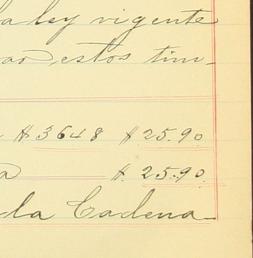 la ley vigente
estos tim-
$ 3648 $ 25.90
a $ 25.90
la Cadena